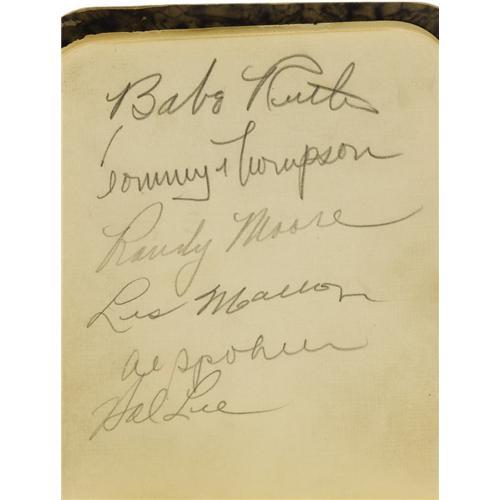 Babe Ruth
Tommy Thompson
Randy Moore
Les Mallon
Al Spohrer
Hal Lee